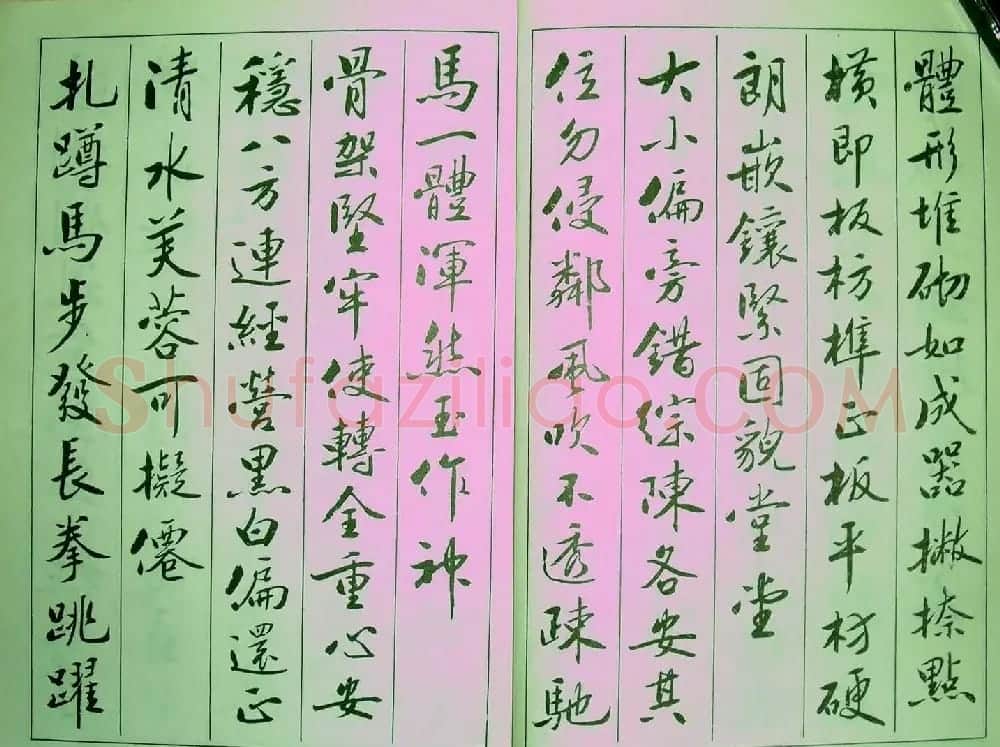 體形堆砌如成器撇捺點
橫即板枋榫正板平材硬
朗嵌鑲緊固貌堂堂
大小偏旁錯綜陳各安其
位勿侵鄰風吹不透疎馳
馬一體渾然玉作神
骨架堅牢使轉全重心安
穩八方連經營黑白偏還正
清水芙蓉可擬僊
扎蹲馬步發長拳跳躍
Shufaziliao.COM